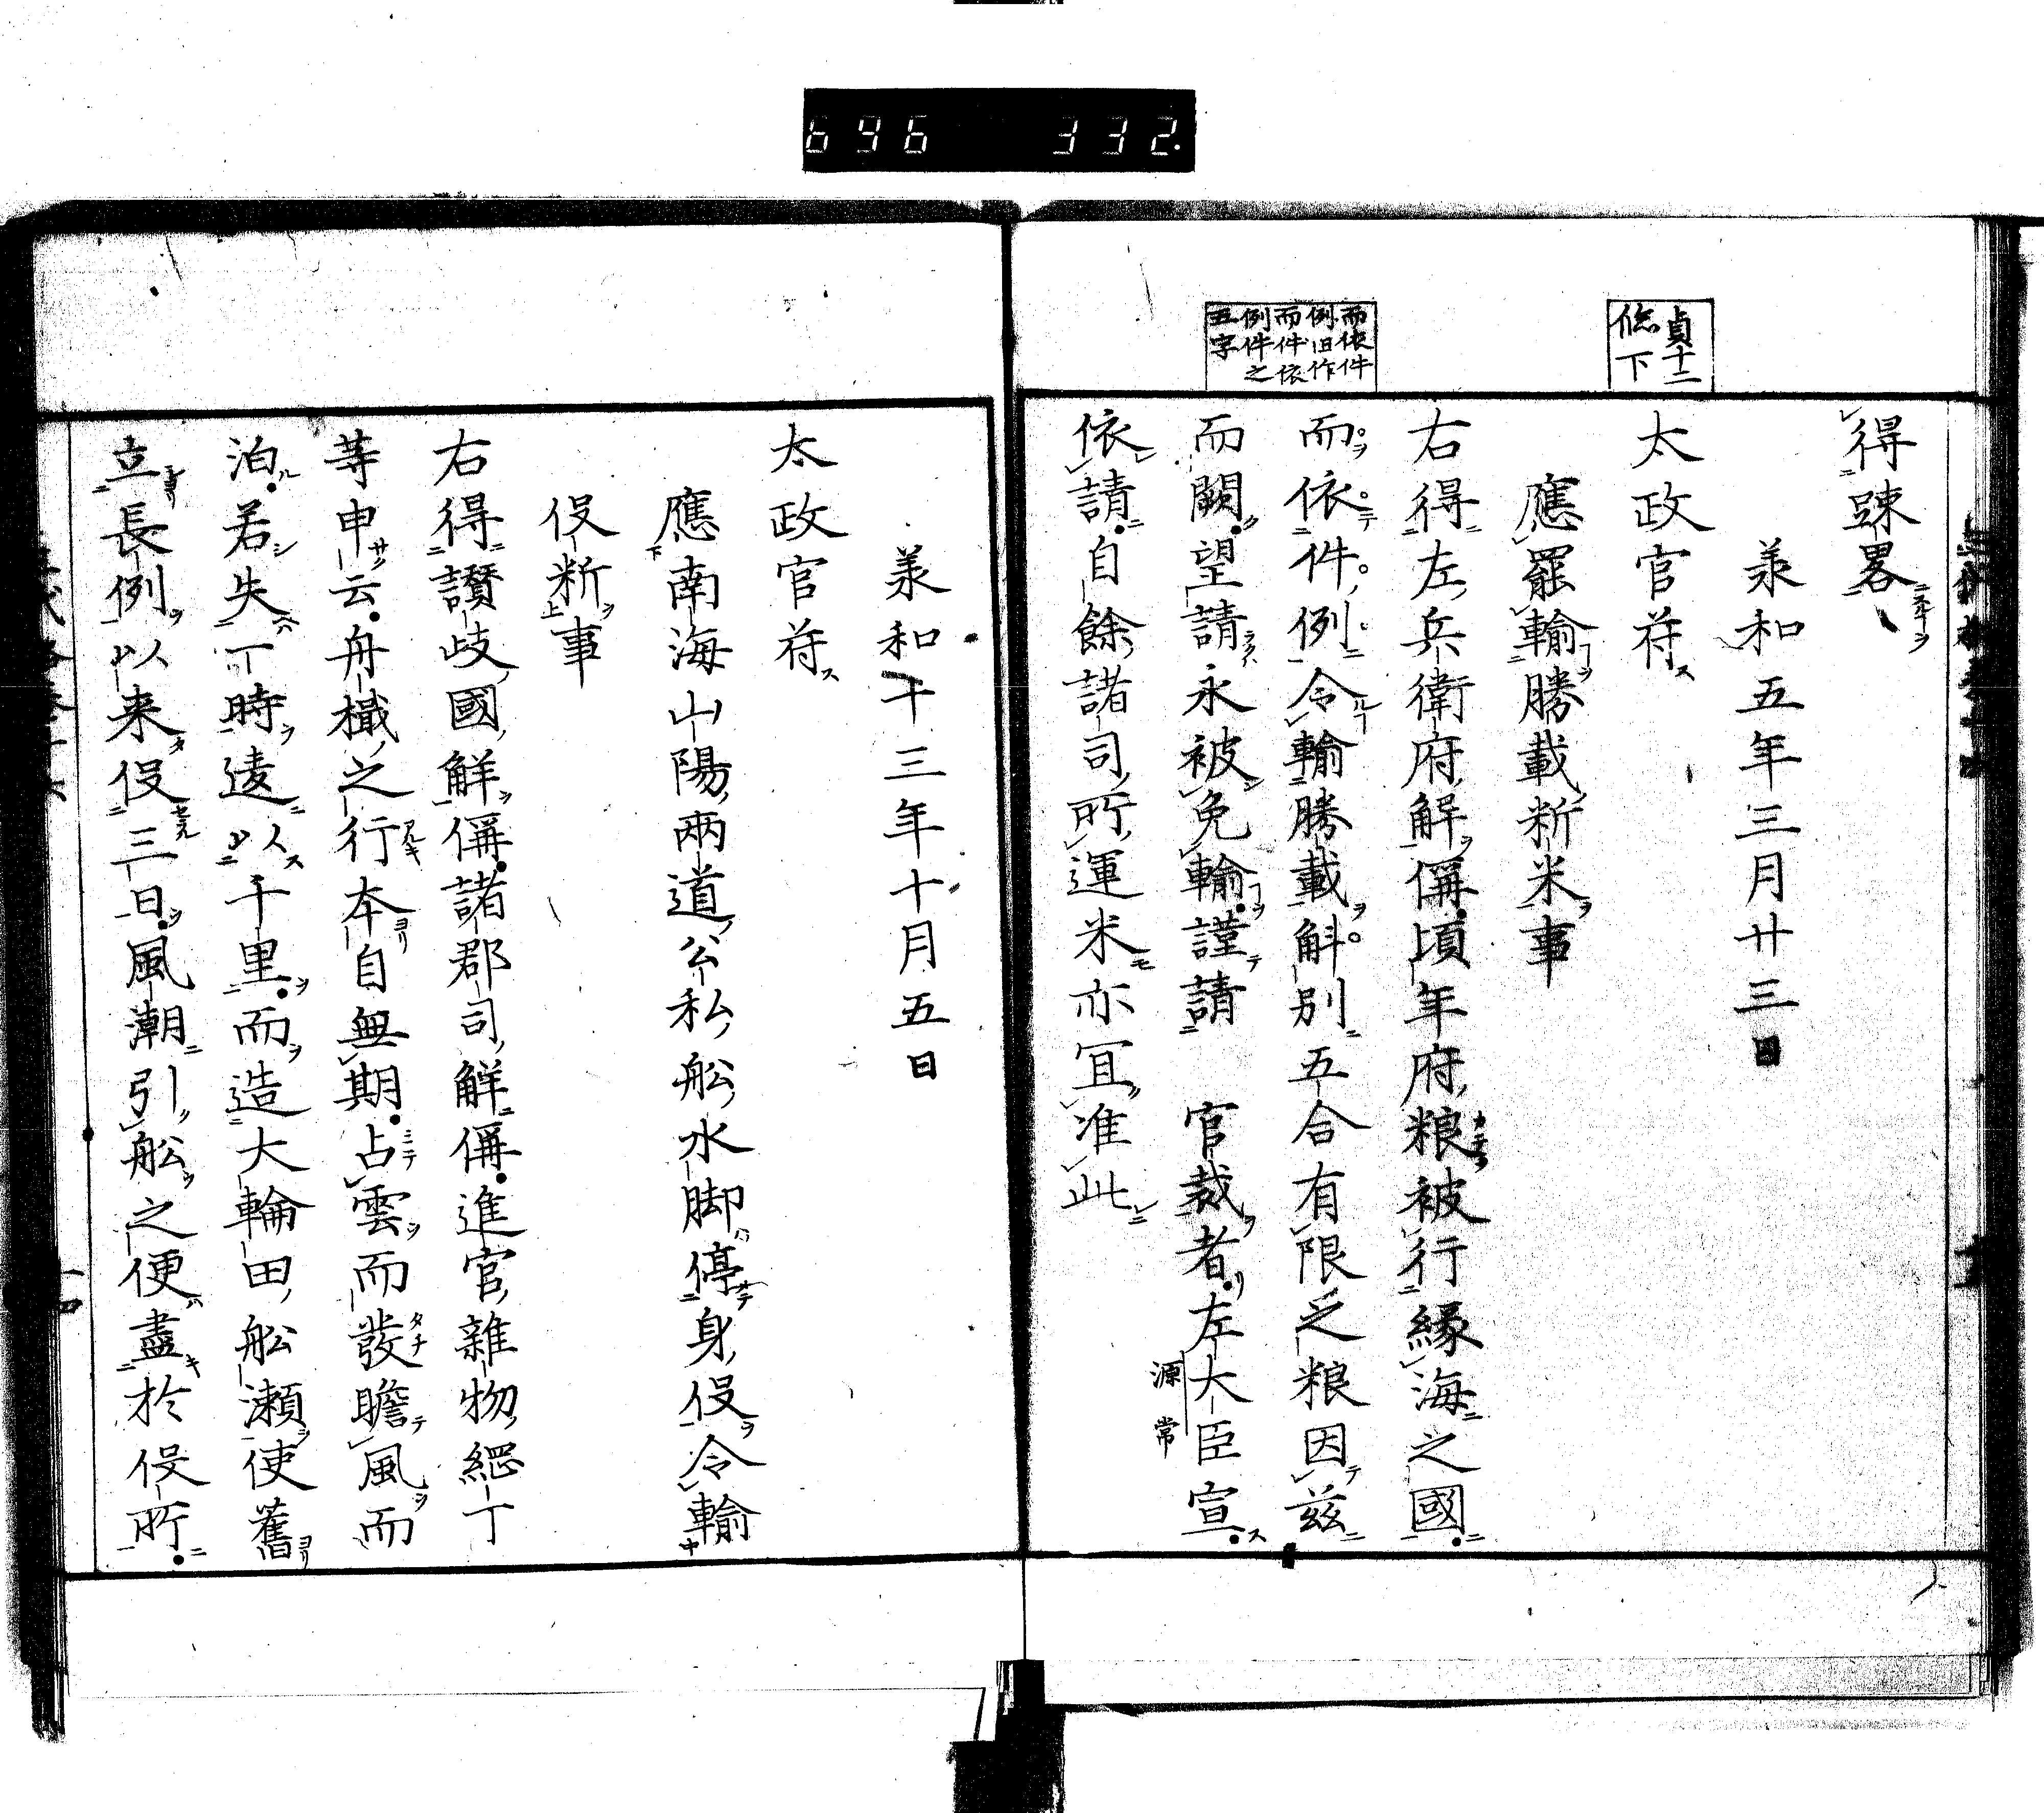 696 332
貞十二
條下
而依件
例旧作
而件依
例件之
五字
得踈畧
羕和五年三月廿三日
太政官苻
應罷輸勝載䉼米事
右得左兵衛府解偁頃年府粮被行縁海之國
而依件例令輸勝載斛別五合有限乏粮因兹
而闕望請永被免輸謹請 官裁者左大臣宣
源常
依請自餘諸司所運米亦宜准此
羕和十三年十月五日
太政官苻
應南海山陽兩道公私舩水脚停身役令輸
役䉼事
右得讃歧國解偁諸郡司解偁進官雜物綱丁
等申云舟檝之行本自無期占雲而發瞻風而
泊若失一時逺以千里而造大輪田舩瀬使舊
立長例以来役三日風潮引舩之便盡於役所